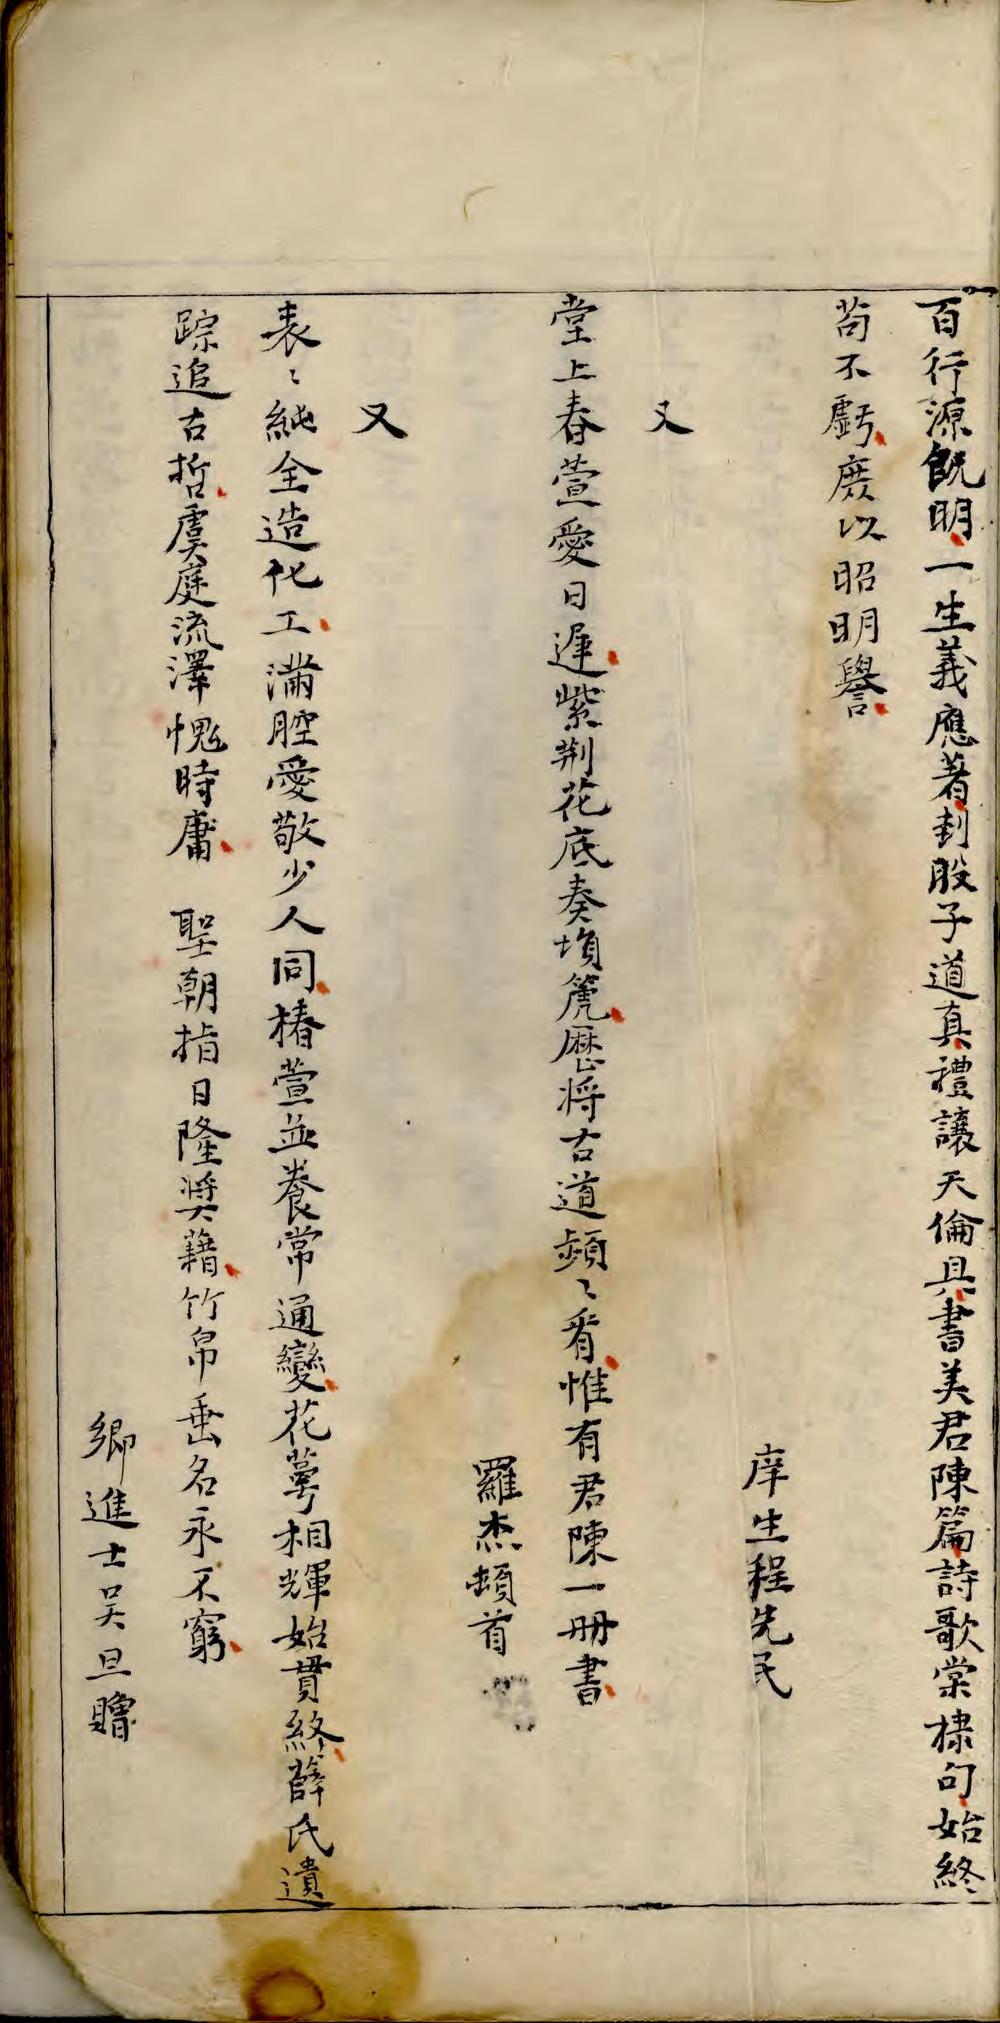 百行源既明一生義應著刲股子道真禮讓天倫具書美君陳篇詩歌棠棣句始終
苟不虧庶以昭明譽
庠生程先民
又
堂上春萱愛日遲紫荆花底奏塤篪歷將古道頻〻看惟有君陳一冊書
羅杰頓首
又
表〻純全造化工滿腔愛敬少人同椿萱並養常通變花萼相輝始貫終薛氏遺
踪追古哲虞庭流澤愧時庸　聖朝指日隆奬藉竹帛垂名永不窮
鄉進士吳旦贈